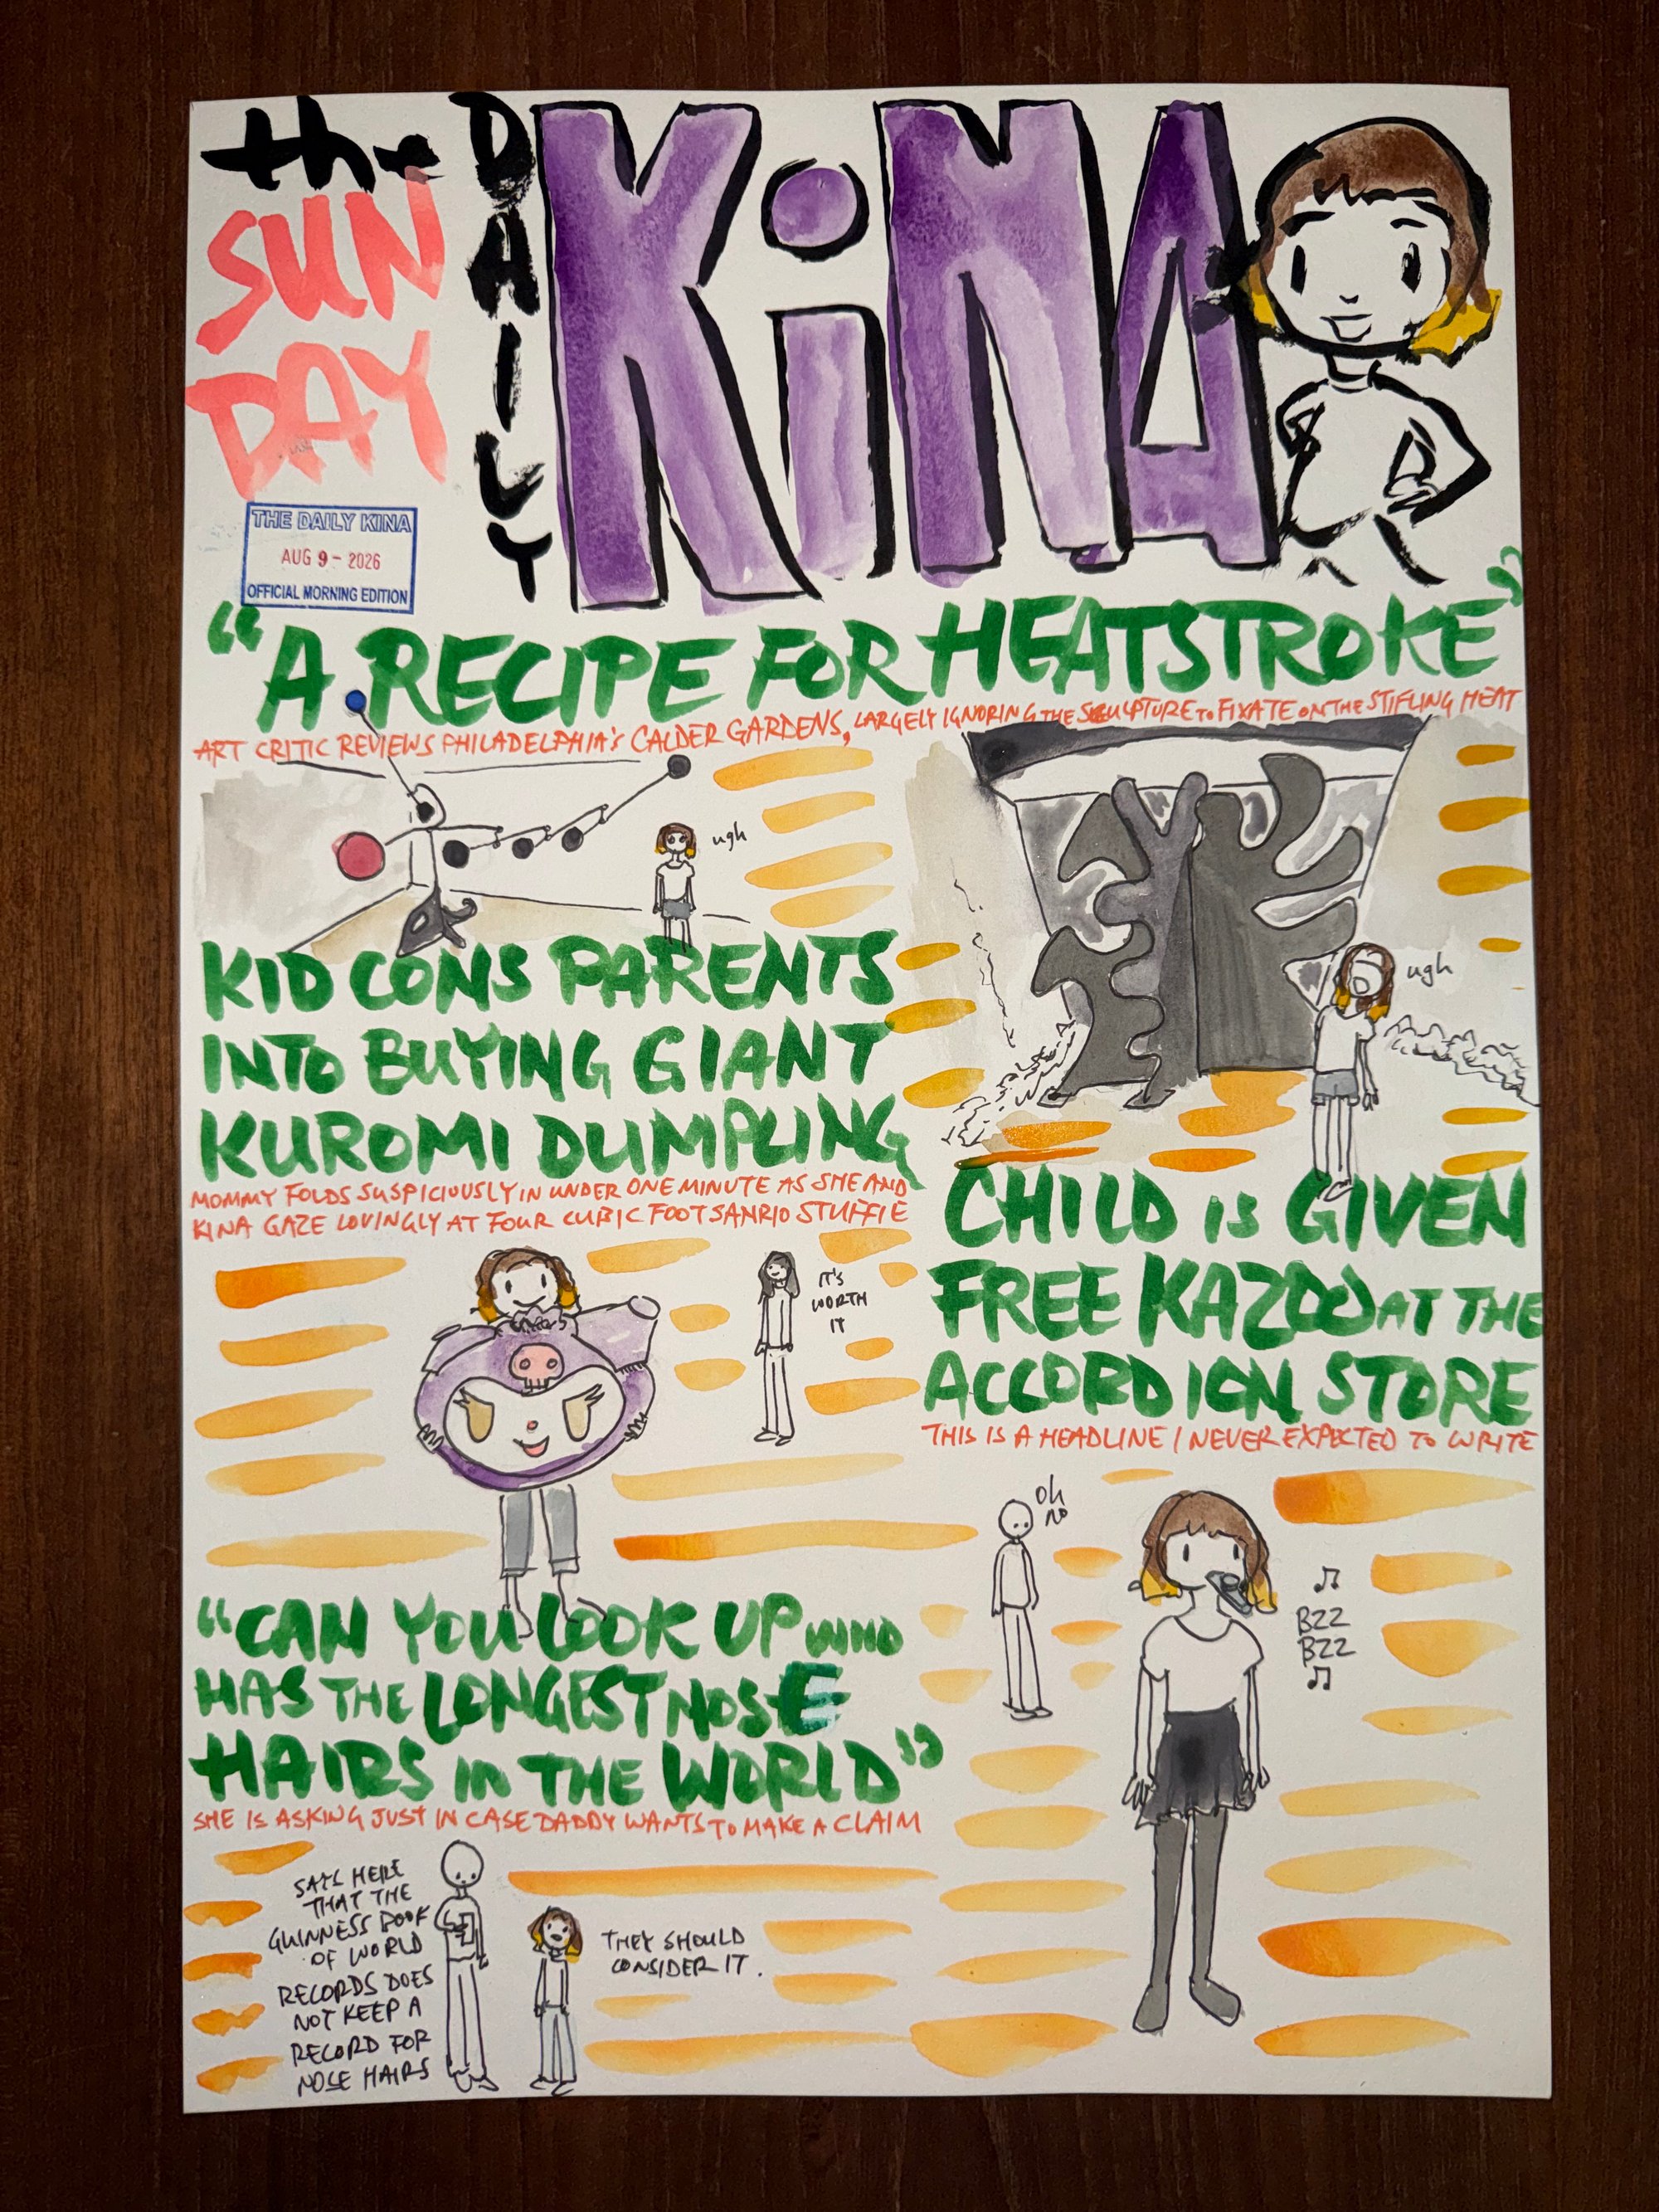 the
SUN
DAY
DAILY
KiNA
THE DAILY KINA
AUG 9 - 2026
OFFICIAL MORNING EDITION
"A RECIPE FOR HEATSTROKE"
ART CRITIC REVIEWS PHILADELPHIA'S CALDER GARDENS, LARGELY IGNORING THE SCULPTURE TO FIXATE ON THE STIFLING HEAT
ugh
ugh
KID CONS PARENTS
INTO BUYING GIANT
KUROMI DUMPLING
MOMMY FOLDS SUSPICIOUSLY IN UNDER ONE MINUTE AS SHE AND
KINA GAZE LOVINGLY AT FOUR CUBIC FOOT SANRIO STUFFIE
IT'S
WORTH
IT
CHILD is GIVEN
FREE KAZOO AT THE
ACCORDION STORE
THIS IS A HEADLINE I NEVER EXPECTED TO WRITE
Oh
no
BZZ
BZZ
"CAN YOU LOOK UP WHO
HAS THE LONGEST NOSE
HAIRS IN THE WORLD"
SHE IS ASKING JUST IN CASE DADDY WANTS TO MAKE A CLAIM
SAYS HERE
THAT THE
GUINNESS BOOK
OF WORLD
RECORDS DOES
NOT KEEP A
RECORD FOR
NOSE HAIRS
THEY SHOULD
CONSIDER IT.